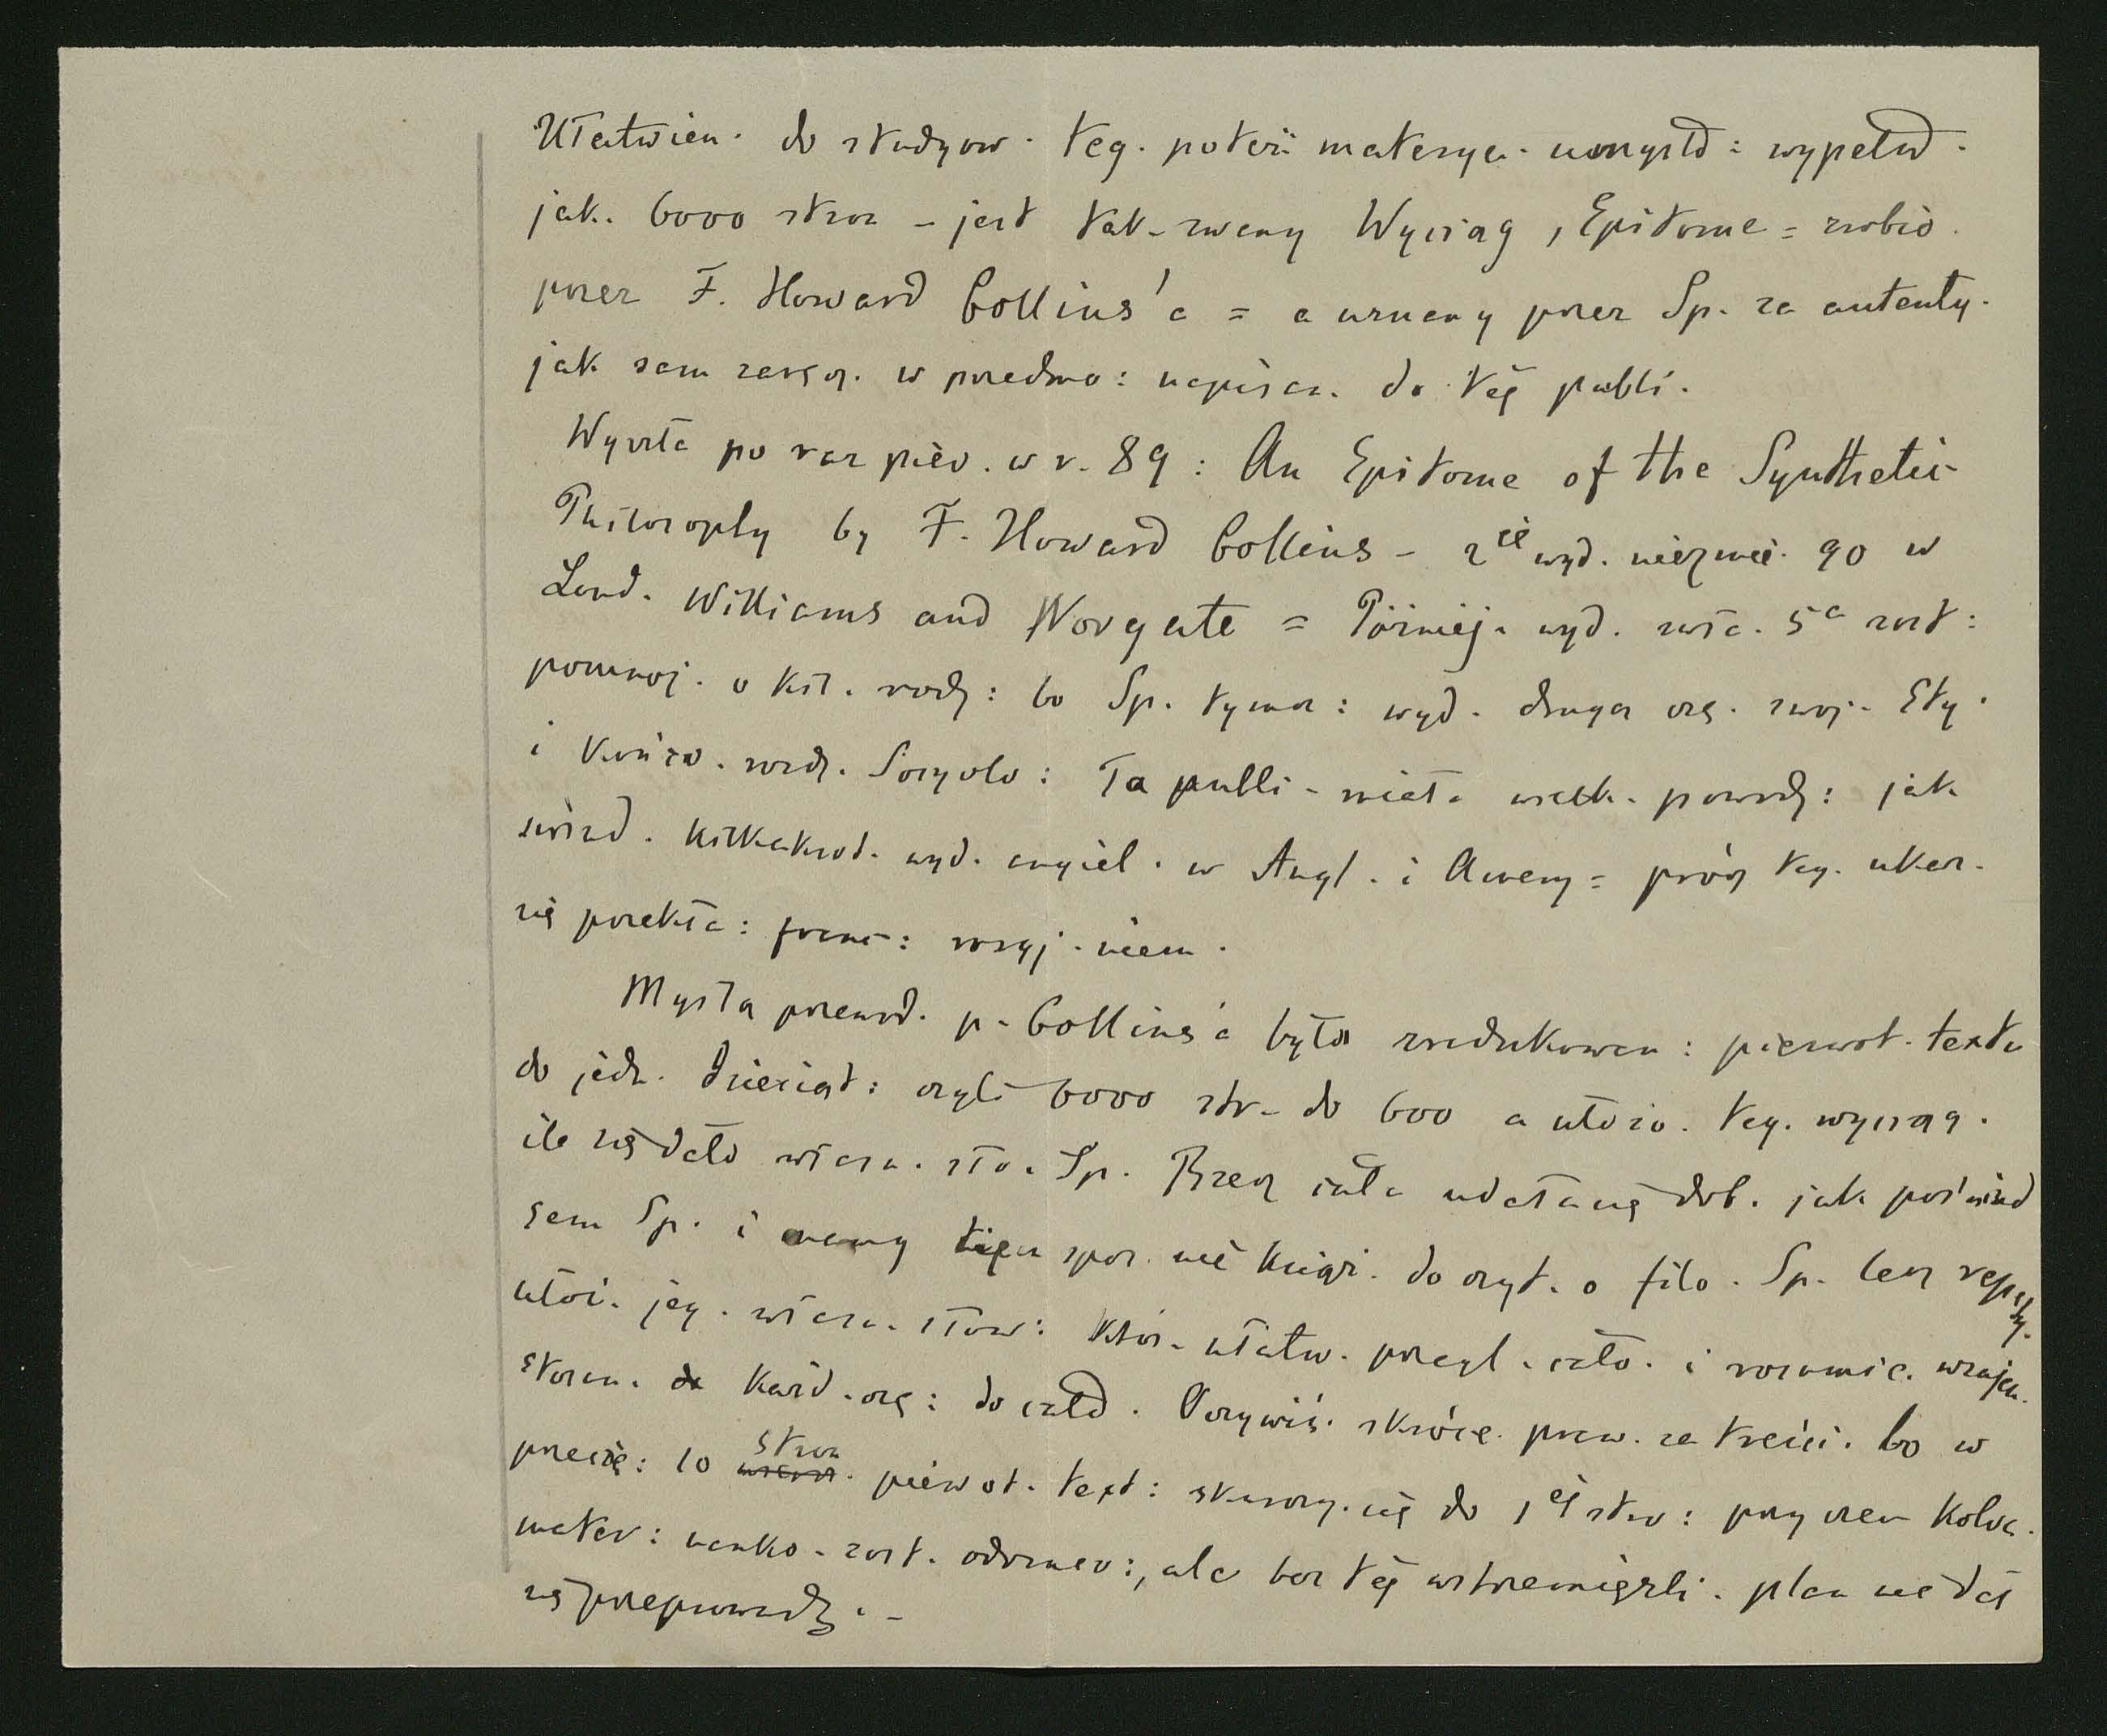 Ułatwien. do studyow. teg. potęż. materya. umysłd: wypełd.
jak. 6000 stron – jest tak-zwany Wyciąg, Epitome = zrobio.
przez F. Howard Collins'a = a uznany przez Sp. za autenty.
jak sam zazn. w przedmo: napisan. do téj publi.
Wyszła po raz piér. w r. 89: An Epitome of the Synthetic
Philosophy by F. Howard Collins – 2ie wyd. niezmie. 90 w
Lond. Williams and Norgate = Później. wyd. zwła. 5a zost:
pomnoj. o kil. rodz: bo Sp. tymcz: wyd. drugą czę. swoj. Ety.
i końco. rozdz. Socyolo: Ta publi – miała wielk. powodz: jak
świad. kilkakrot. wyd. angiel. w Angl. i Amery = prócz teg. ukaz.
się przekła: franc: rosyj. niem.
Myślą przewod. p. Collins'a była zredukowan: pierwot. textu
do jedn. dziesiąt: czyli 6000 str – do 600 a ułożo. teg. wyciąg.
ile się dało własn. sło. Sp. Rzecz cała udała się dob. jak poświad
sam Sp. i mamy spos. nie książ. do czyt. o filo. Sp. lecz
ułoż. jeg. własn. słow: któr. ułatw. przegl. cało. i rozumie. wzajem.
stosun. każd. czę: do całd. Oczywiś. skróce. praw. za treści. bo w
przecię: 10 stron pierwot. text: skurczy. się do 1éj stro: przy czem kolos.
mater: nauko. zost. odrzuco:, ale bez téj wstrzemięźli. plan nie dał
się przeprowadz. –